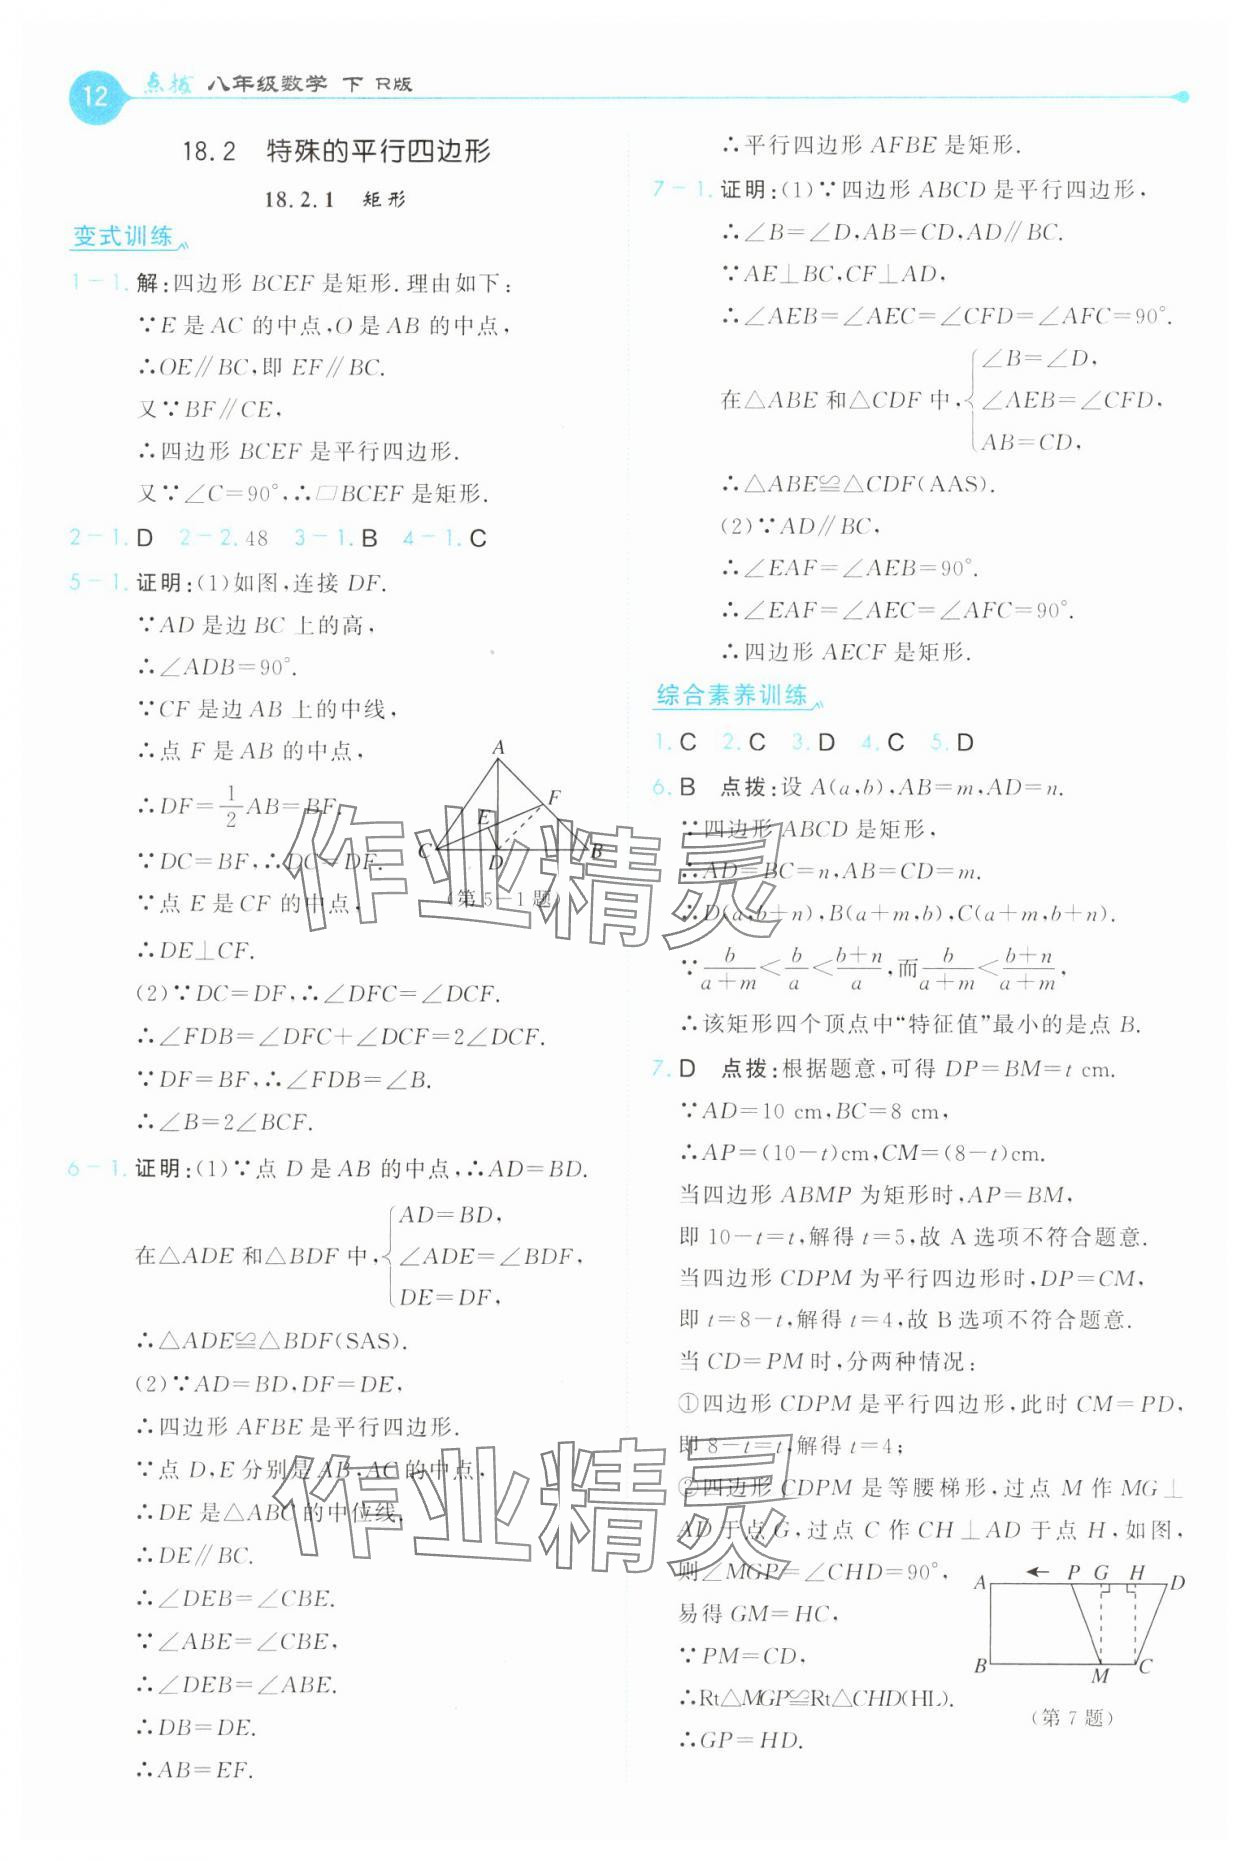 12 点拨 八年级数学 下 R版
18.2 特殊的平行四边形
18.2.1 矩形
变式训练
1－1. 解:四边形 BCEF 是矩形.理由如下:
∵E 是 AC 的中点,O 是 AB 的中点,
∴OE∥BC,即 EF∥BC.
又∵BF∥CE,
∴四边形 BCEF 是平行四边形.
又∵∠C=90°,∴□BCEF 是矩形.
2－1. D 2－2. 48 3－1. B 4－1. C
5－1. 证明:(1)如图,连接 DF.
∵AD 是边 BC 上的高,
∴∠ADB=90°.
∵CF 是边 AB 上的中线,
∴点 F 是 AB 的中点,
∴DF=1/2AB=BF.
∵DC=BF,∴DC=DF.
∵点 E 是 CF 的中点,
∴DE⊥CF.
A
F
E
C
D
B
(第 5－1 题)
(2)∵DC=DF,∴∠DFC=∠DCF.
∴∠FDB=∠DFC+∠DCF=2∠DCF.
∵DF=BF,∴∠FDB=∠B.
∴∠B=2∠BCF.
6－1. 证明:(1)∵点 D 是 AB 的中点,∴AD=BD.
在△ADE 和△BDF 中,{AD=BD,
∠ADE=∠BDF,
DE=DF,
∴△ADE≌△BDF(SAS).
(2)∵AD=BD,DF=DE,
∴四边形 AFBE 是平行四边形.
∵点 D,E 分别是 AB,AC 的中点,
∴DE 是△ABC 的中位线,
∴DE∥BC.
∴∠DEB=∠CBE.
∵∠ABE=∠CBE,
∴∠DEB=∠ABE.
∴DB=DE.
∴AB=EF.
∴平行四边形 AFBE 是矩形.
7－1. 证明:(1)∵四边形 ABCD 是平行四边形,
∴∠B=∠D,AB=CD,AD∥BC.
∵AE⊥BC,CF⊥AD,
∴∠AEB=∠AEC=∠CFD=∠AFC=90°.
在△ABE 和△CDF 中,{∠B=∠D,
∠AEB=∠CFD,
AB=CD,
∴△ABE≌△CDF(AAS).
(2)∵AD∥BC,
∴∠EAF=∠AEB=90°.
∴∠EAF=∠AEC=∠AFC=90°.
∴四边形 AECF 是矩形.
综合素养训练
1. C 2. C 3. D 4. C 5. D
6. B 点拨:设 A(a,b),AB=m,AD=n.
∵四边形 ABCD 是矩形,
∴AD=BC=n,AB=CD=m.
∴D(a,b+n),B(a+m,b),C(a+m,b+n).
∵b/(a+m)<b/a<(b+n)/a,而b/(a+m)<(b+n)/(a+m),
∴该矩形四个顶点中“特征值”最小的是点 B.
7. D 点拨:根据题意,可得 DP=BM=t cm.
∵AD=10 cm,BC=8 cm,
∴AP=(10-t)cm,CM=(8-t)cm.
当四边形 ABMP 为矩形时,AP=BM,
即 10-t=t,解得 t=5,故 A 选项不符合题意.
当四边形 CDPM 为平行四边形时,DP=CM,
即 t=8-t,解得 t=4,故 B 选项不符合题意.
当 CD=PM 时,分两种情况:
①四边形 CDPM 是平行四边形,此时 CM=PD,
即 8-t=t,解得 t=4;
②四边形 CDPM 是等腰梯形,过点 M 作 MG⊥
AD 于点 G,过点 C 作 CH⊥AD 于点 H,如图,
则∠MGP=∠CHD=90°,
易得 GM=HC,
∵PM=CD,
∴Rt△MGP≌Rt△CHD(HL).
∴GP=HD.
A P G H D
B M C
(第 7 题)
作业精灵
作业精灵